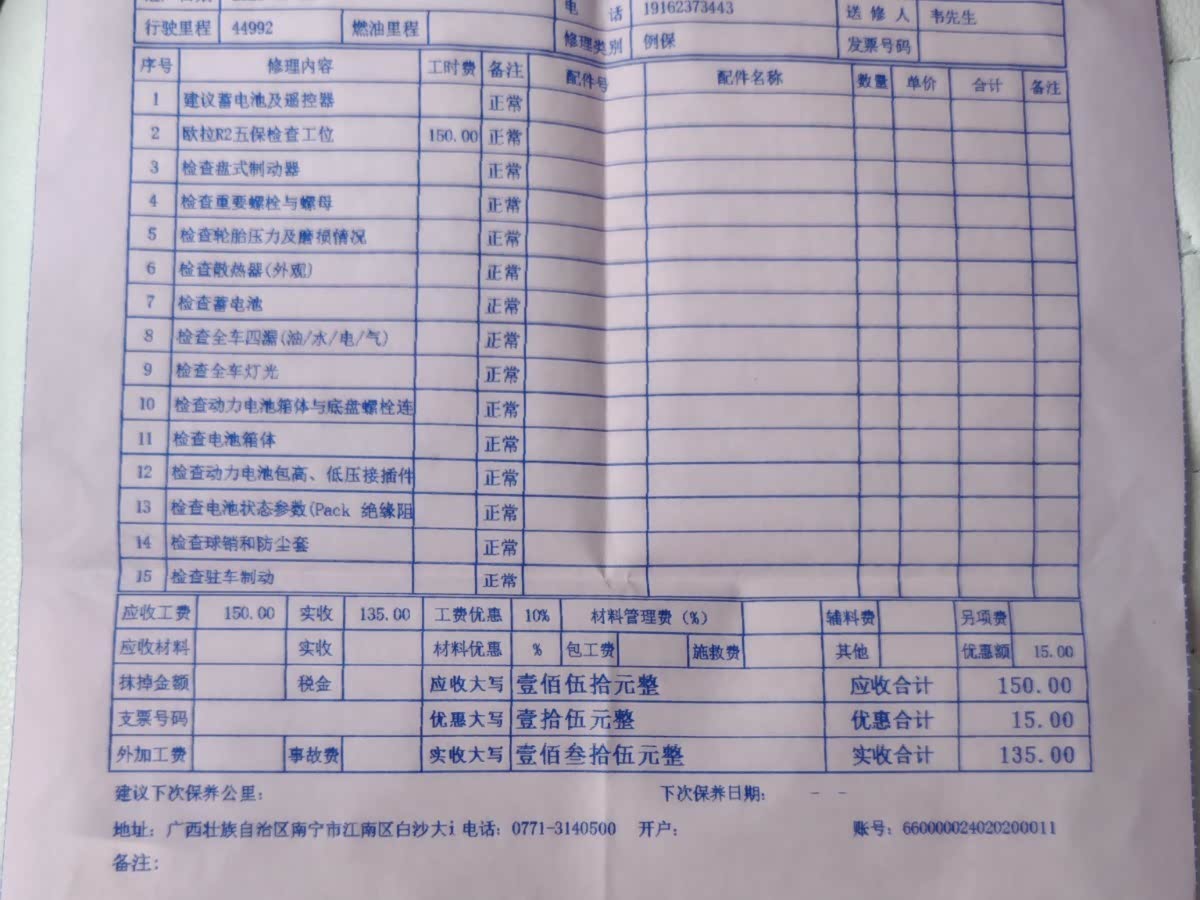 电 话 19162373443 送 修 人 韦先生
行驶里程 44992 燃油里程 修理类别 例保 发票号码
序号 修理内容 工时费 备注 配件号 配件名称 数量 单价 合计 备注
1 建议蓄电池及遥控器 正常
2 欧拉R2五保检查工位 150.00 正常
3 检查盘式制动器 正常
4 检查重要螺栓与螺母 正常
5 检查轮胎压力及磨损情况 正常
6 检查散热器(外观) 正常
7 检查蓄电池 正常
8 检查全车四漏(油/水/电/气) 正常
9 检查全车灯光 正常
10 检查动力电池箱体与底盘螺栓连 正常
11 检查电池箱体 正常
12 检查动力电池包高、低压接插件 正常
13 检查电池状态参数(Pack 绝缘阻 正常
14 检查球销和防尘套 正常
15 检查驻车制动 正常
应收工费 150.00 实收 135.00 工费优惠 10% 材料管理费（%） 辅料费 另项费
应收材料 实收 材料优惠 % 包工费 施救费 其他 优惠额 15.00
抹掉金额 税金 应收大写 壹佰伍拾元整 应收合计 150.00
支票号码 优惠大写 壹拾伍元整 优惠合计 15.00
外加工费 事故费 实收大写 壹佰叁拾伍元整 实收合计 135.00
建议下次保养公里： 下次保养日期： - -
地址：广西壮族自治区南宁市江南区白沙大i 电话：0771-3140500 开户： 账号：660000024020200011
备注：